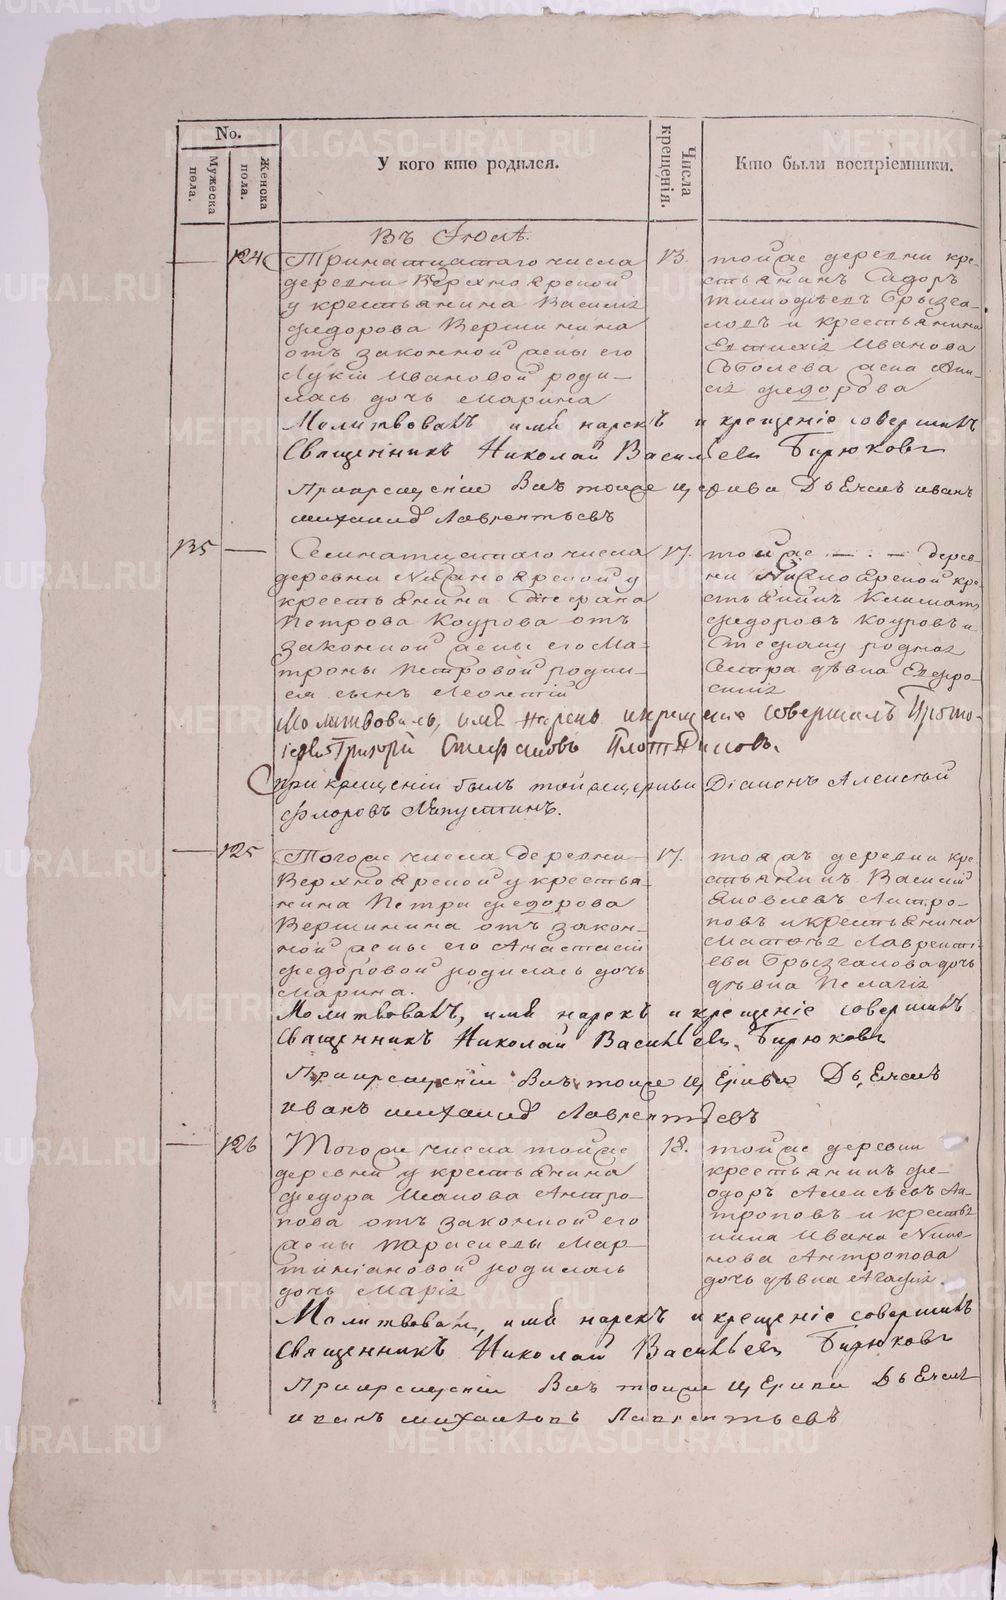 No.
Мужеска пола.
Женска пола.
У кого кто родился.
Числа крещенія.
Кто были воспріемники.
Въ Іюлѣ.
124
Тринатцатаго числа
деревни Верхнояреной
у крестьянина Василія
Федорова Вершинина
отъ законной жены его
Лукіи Ивановой роди-
лась дочь Марина
13.
тойже деревни кре-
стьянинъ Сидоръ
Брызга-
ловъ и крестьянина
Иванова
Соболева жена
Федорова
Молитвовалъ имя нарекъ и крещеніе совершилъ
Священникъ Николай Васильевъ Бирюковъ
При крещеніи былъ тойже церкви Дьячекъ Иванъ
Михаиловъ Лаврентьевъ
135
Семнатцатаго числа
деревни у
крестьянина Стефана
Петрова Коурова отъ
законной жены его Ма-
троны Петровой родил-
ся сынъ Леонтій
17.
тойже дерев-
ни кре-
стьянинъ
Федоровъ Коуровъ и
Стефану родная
сестра дѣвка Ефро-
синія
Молитвовалъ, имя нарекъ и крещеніе совершалъ Прото-
іерей Григорій Стефановъ Плотниковъ.
При крещеніи былъ тойже церкви Діаконъ Алексѣй
Флоровъ Капустинъ.
125
Тогоже числа деревни
Верхнояреной у крестья-
нина Петра Федорова
Вершинина отъ закон-
ной жены его Анастасіи
Федоровой родилась дочь
Марина.
17.
тояжъ деревни кре-
стьянинъ Василій
Яковлевъ Антро-
повъ и крестьянина
Лавренті-
ева Брызгалова дочь
дѣвка Пелагія
Молитвовалъ, имя нарекъ и крещеніе совершилъ
Священникъ Николай Васильевъ Бирюковъ
При крещеніи былъ тойже церкви Дьячекъ
Иванъ Михаиловъ Лаврентьевъ
126
Тогоже числа тойже
деревни у крестьянина
Федора Иванова Антро-
пова отъ законной его
жены Параскевы Мар-
тиніановой родилась
дочь Марія
18.
тойже деревни
крестьянинъ Фе-
одоръ Алексѣевъ Ан-
троповъ и крестья-
нина Ивана
Антропова
дочь дѣвка Агафія.
Молитвовалъ, имя нарекъ и крещеніе совершилъ
Священникъ Николай Васильевъ Бирюковъ
При крещеніи былъ тойже церкви Дьячекъ
Иванъ Михаиловъ Лаврентьевъ
METRIKI.GASO-URAL.RU